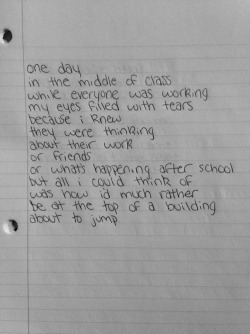 one day
in the middle of class
while everyone was working
my eyes filled with tears
because i knew
they were thinking
about their work
or friends
or what's happening after school
but all i could think of
was how i'd much rather
be at the top of a building
about to jump